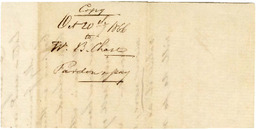 Copy
Oct 20th 1866
to
W. B. Chase
Pardon & pay